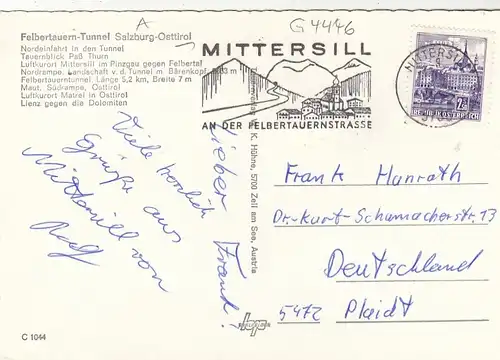 A
G 4446
Felbertauern-Tunnel Salzburg-Osttirol
Nordeinfahrt in den Tunnel
Tauernblick Paß Thurn
Luftkurort Mittersill im Pinzgau gegen Felbertal
Nordrampe. Landschaft v. d. Tunnel m. Bärenkopf,
Felbertauerntunnel. Länge 5,2 km, Breite 7 m
Maut. Südrampe, Osttirol
Luftkurort Matrei in Osttirol
Lienz gegen die Dolomiten
MITTERSILL
AN DER FELBERTAUERNSTRASSE
REPUBLIK ÖSTERREICH
Lieber Frank!
Viele herzlich
Grüße aus
Mittersill von
K. Hühne, 5700 Zell am See, Austria
Frank Hunroth
Dr.-Kurt-Schumacherstr.13
Deutschland
5472 Plaidt
C 1044